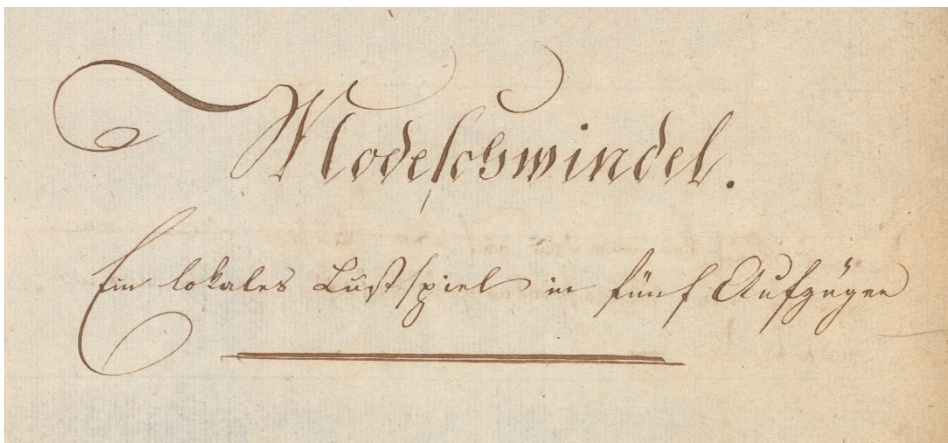 Modeschwindel.
Ein lokales Lustspiel in fünf Aufzügen